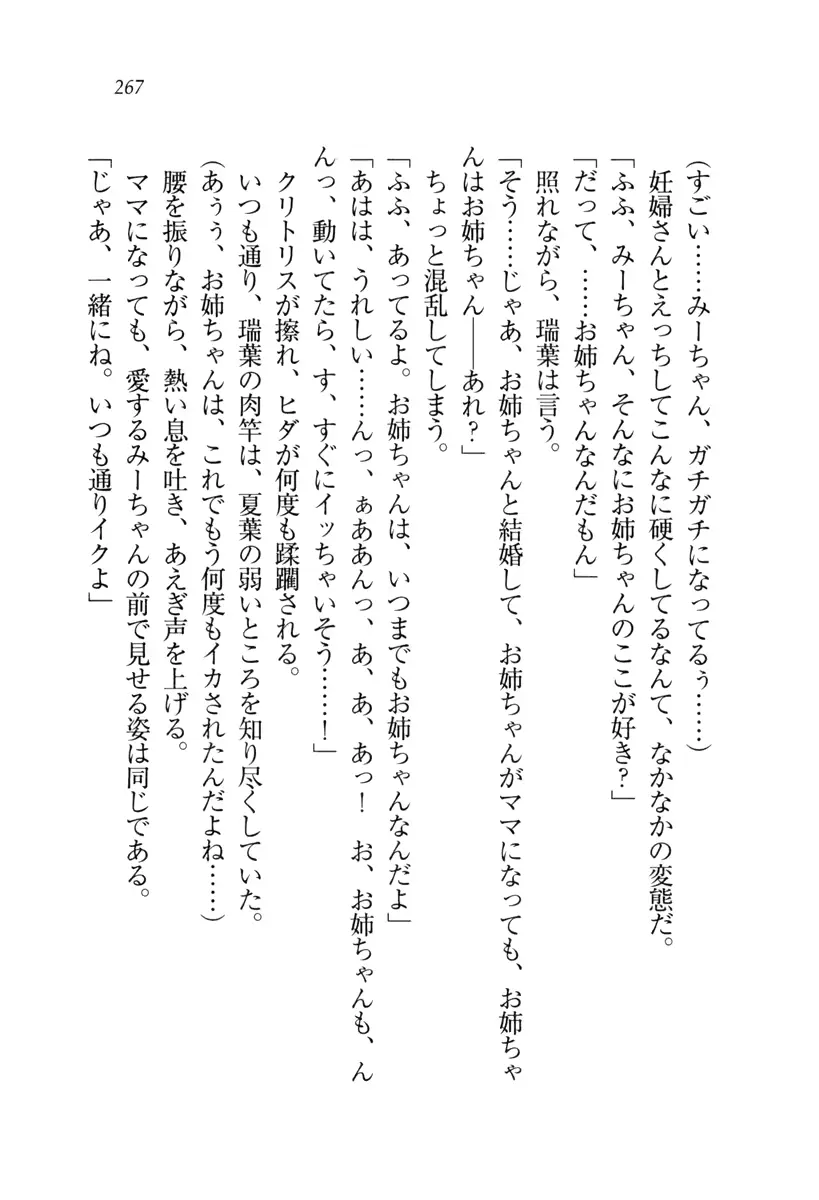 267
(すごい……みーちゃん、ガチガチになってるぅ……)
妊婦さんとえっちしてこんなに硬くしてるなんて、なかなかの変態だ。
「ふふ、みーちゃん、そんなにお姉ちゃんのここが好き?」
「だって、……お姉ちゃんなんだもん」
照れながら、瑞葉は言う。
「そう……じゃあ、お姉ちゃんと結婚して、お姉ちゃんがママになっても、お姉ちゃ
んはお姉ちゃん――あれ?」
ちょっと混乱してしまう。
「ふふ、あってるよ。お姉ちゃんは、いつまでもお姉ちゃんなんだよ」
「あはは、うれしい……んっ、ぁああんっ、あ、あ、あっ! お、お姉ちゃんも、ん
んっ、動いてたら、す、すぐにイッちゃいそう……!」
クリトリスが擦れ、ヒダが何度も蹂躙される。
いつも通り、瑞葉の肉竿は、夏葉の弱いところを知り尽くしていた。
(あぅぅ、お姉ちゃんは、これでもう何度もイカされたんだよね……)
腰を振りながら、熱い息を吐き、あえぎ声を上げる。
ママになっても、愛するみーちゃんの前で見せる姿は同じである。
「じゃあ、一緒にね。いつも通りイクよ」